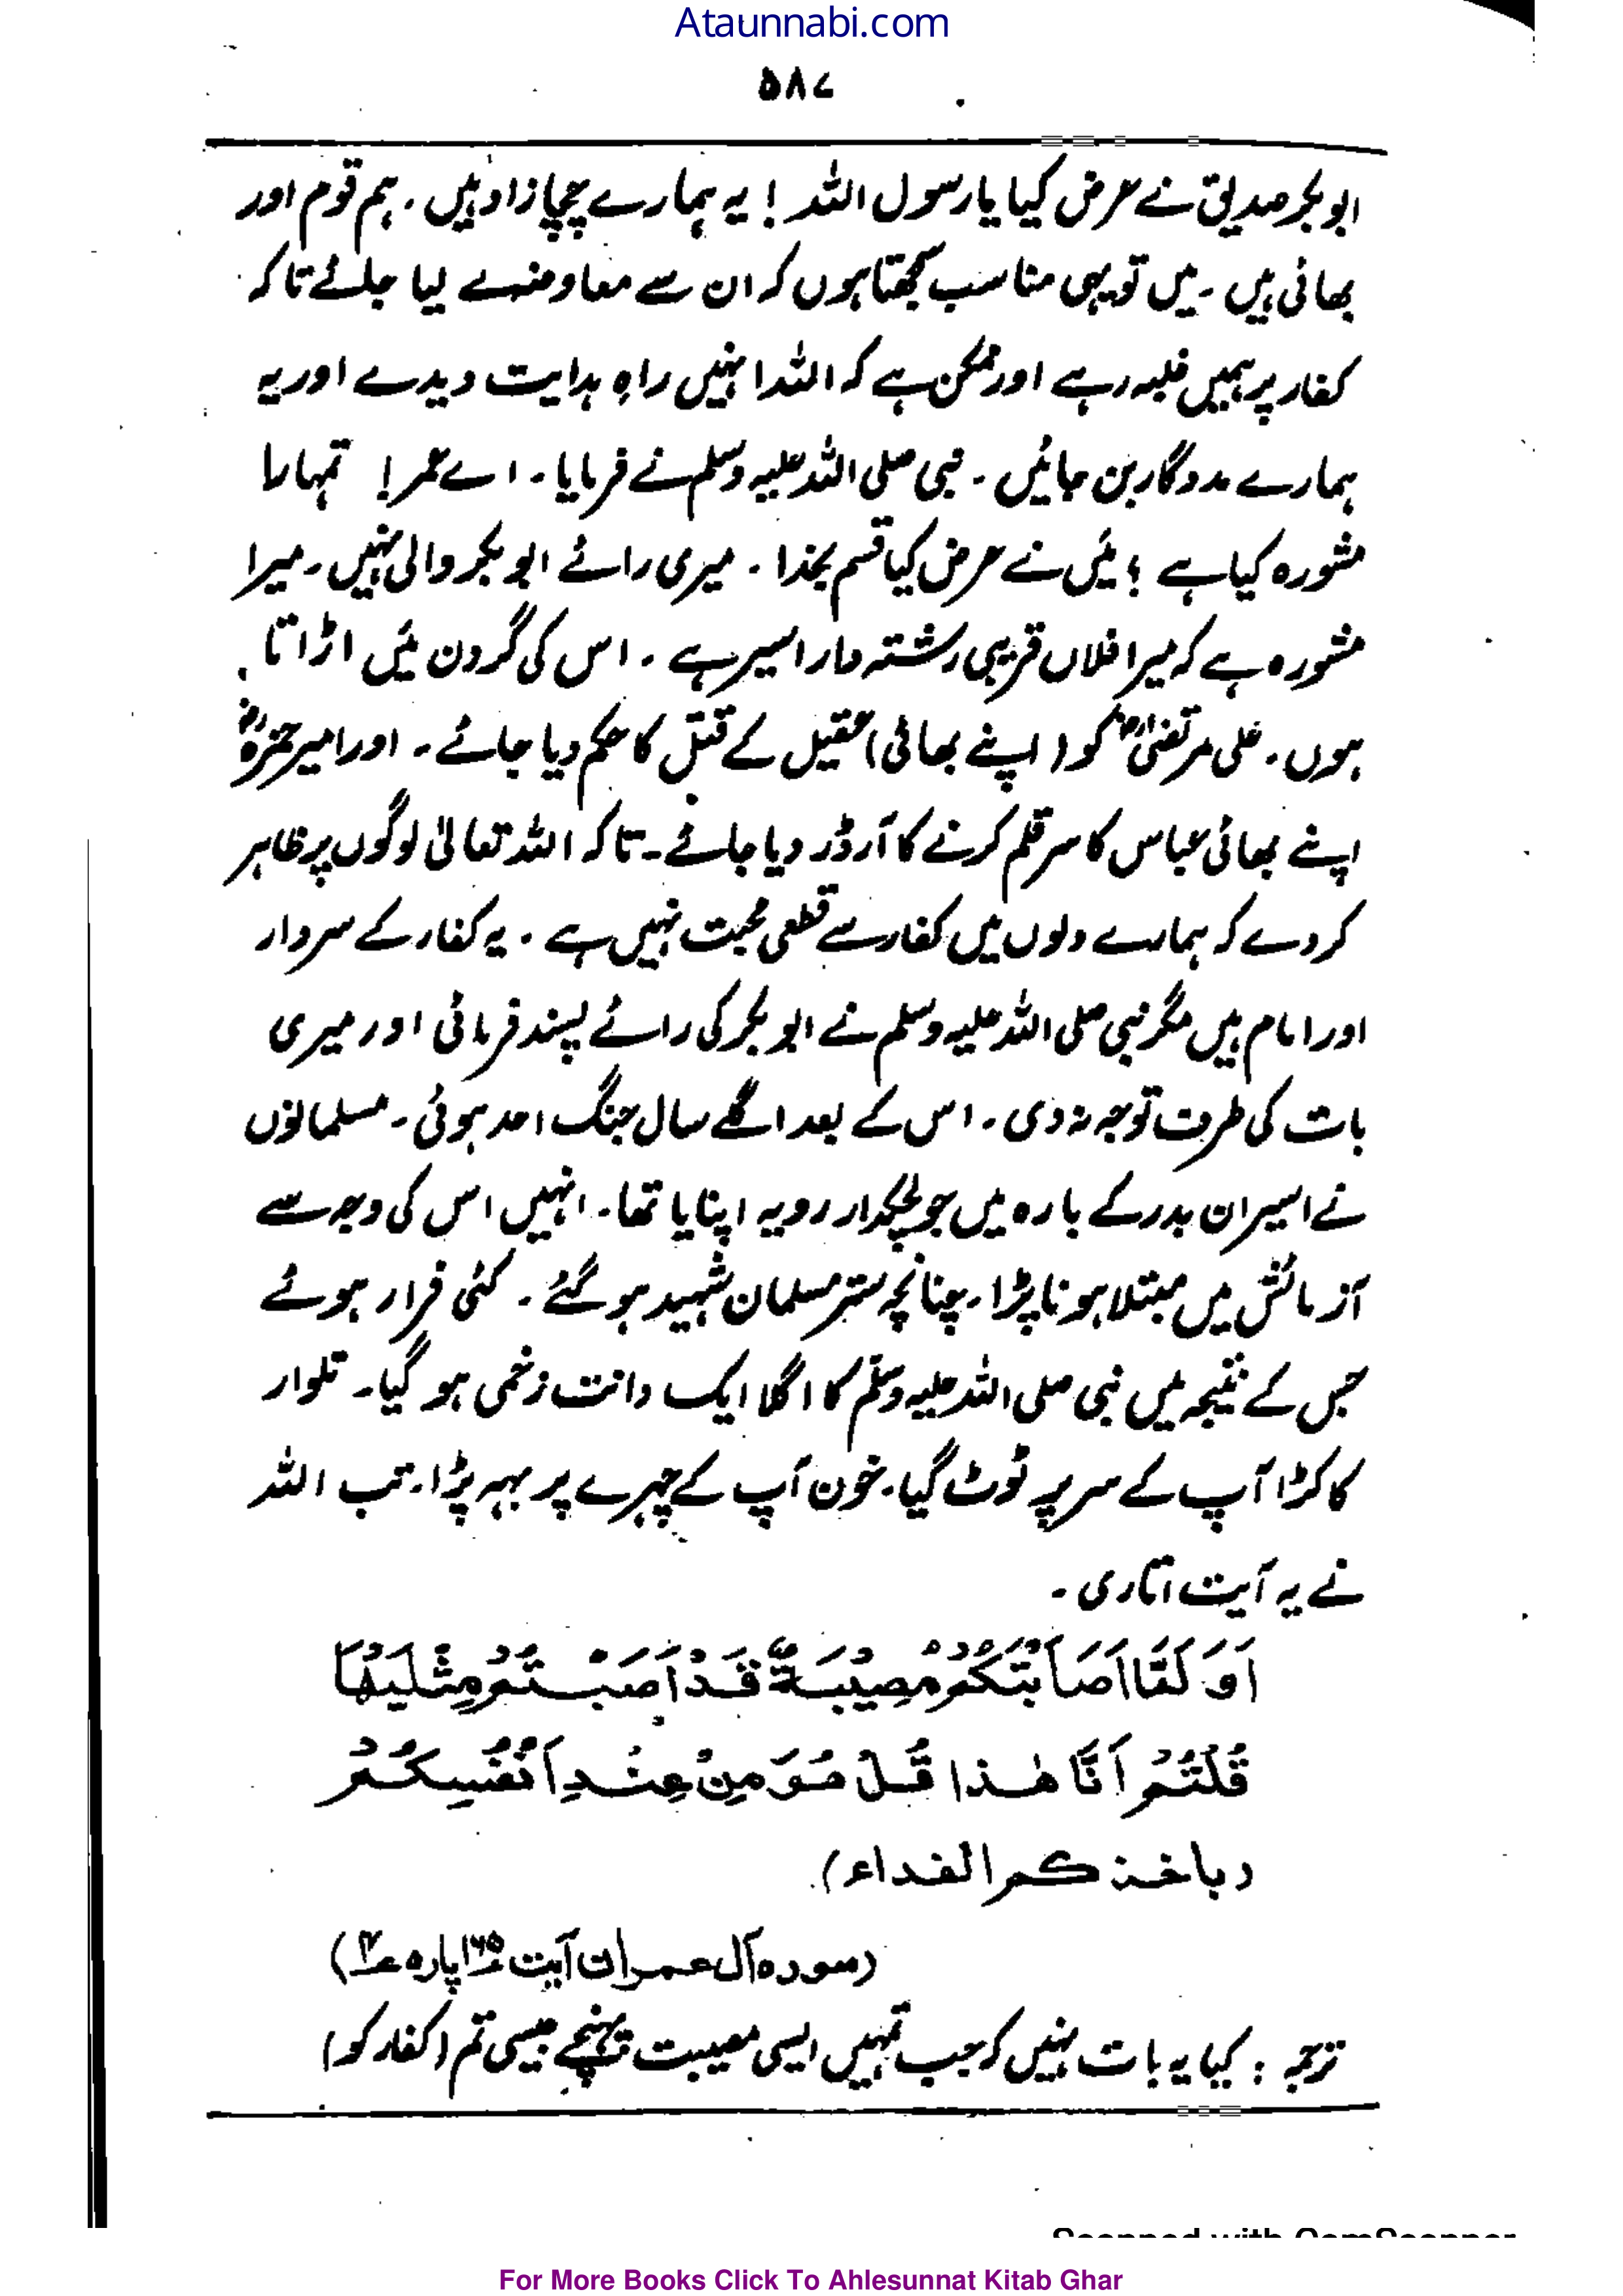 Ataunnabi.com
۵۸۷
ابوبکر صدیق نے عرض کیا یا رسول اللہ ! یہ ہمارے چچازاد ہیں ۔ ہم قوم اور
بھائی ہیں ۔ میں تو یہی مناسب سمجھتا ہوں کہ ان سے معاوضہ لے لیا جائے تاکہ
کفار پر ہمیں غلبہ رہے اور ممکن ہے کہ اللہ انہیں راہِ ہدایت دیدے اور یہ
ہمارے مددگار بن جائیں ۔ نبی صلی اللہ علیہ وسلم نے فرمایا ۔ اے عمر ! تمہارا
مشورہ کیا ہے ؟ میں نے عرض کیا قسم بخدا ۔ میری رائے ابوبکر والی نہیں ۔ میرا
مشورہ ہے کہ میرا فلاں قریبی رشتہ دار اسیر ہے ۔ اس کی گردن میں اڑاتا
ہوں ۔ علی مرتضیٰؓ کو (اپنے بھائی) عقیل کے قتل کا حکم دیا جائے ۔ اور امیر حمزہؓ
اپنے بھائی عباس کا سر قلم کرنے کا آرڈر دیا جائے ۔ تاکہ اللہ تعالیٰ لوگوں پر ظاہر
کر دے کہ ہمارے دلوں میں کفار سے قطعی محبت نہیں ہے ۔ یہ کفار کے سردار
اور امام ہیں مگر نبی صلی اللہ علیہ وسلم نے ابوبکر کی رائے پسند فرمائی اور میری
بات کی طرف توجہ نہ دی ۔ اس کے بعد اگلے سال جنگ احد ہوئی ۔ مسلمانوں
نے اسیران بدر کے بارہ میں جو لچکدار رویہ اپنایا تھا ۔ انہیں اس کی وجہ سے
آزمائش میں مبتلا ہونا پڑا ۔ چنانچہ ستر مسلمان شہید ہو گئے ۔ کئی فرار ہوئے
جس کے نتیجہ میں نبی صلی اللہ علیہ وسلّم کا اگلا ایک دانت زخمی ہو گیا ۔ تلوار
کا کڑا آپ کے سر پر ٹوٹ گیا ۔ خون آپ کے چہرے پر بہہ پڑا ۔ تب اللہ
نے یہ آیت اتاری ۔
اَوَ لَمَّا اَصَابَتْكُمْ مُصِيْبَةٌ قَدْ اَصَبْتُمْ مِثْلَيْهَا
قُلْتُمْ اَنّٰى هٰذَا قُلْ هُوَ مِنْ عِنْدِ اَنْفُسِكُمْ
(باخذكم الفداء)
(سورہ آل عمران آیت ۱۶۵ پارہ ۴)
ترجمہ : کیا یہ بات نہیں کہ جب تمہیں ایسی مصیبت پہنچے جیسی تم (کفار کو)
Scanned with CamScanner
For More Books Click To Ahlesunnat Kitab Ghar